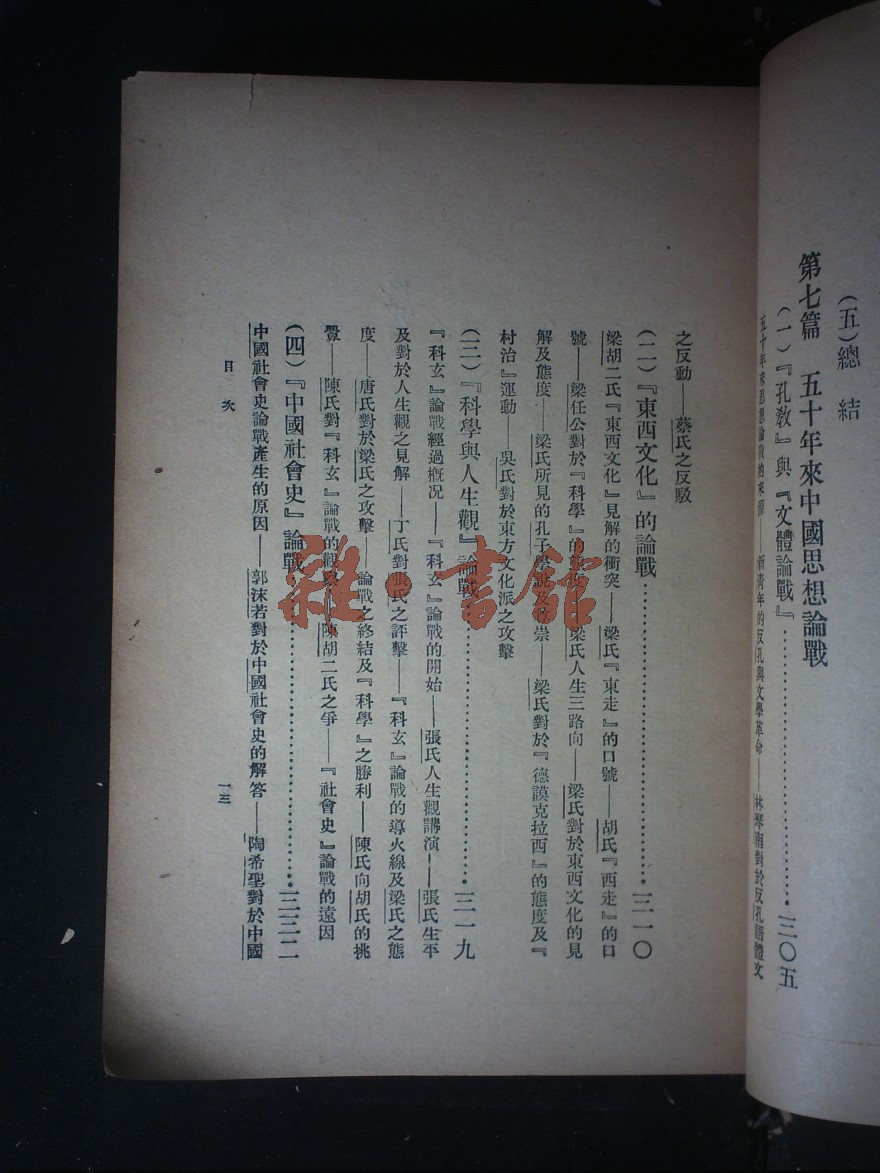 (五)總結
第七篇 五十年來中國思想論戰
(一)『孔教』與『文體論戰』……三〇五
五十年來思想論戰的來源——新青年的反孔與文學革命——林琴南對於反孔語體文
之反動——蔡氏之反駁
(二)『東西文化』的論戰……三一〇
梁胡二氏『東西文化』見解的衝突——梁氏『東走』的口號——胡氏『西走』的口
號——梁任公對於『科學』的態度——梁氏人生三路向——梁氏對於東西文化的見
解及態度——梁氏所見的孔子學說及尊崇——梁氏對於『德謨克拉西』的態度及『
村治』運動——吳氏對於東方文化派之攻擊
(三)『科學與人生觀』論戰……三一九
『科玄』論戰經過概況——『科玄』論戰的開始——張氏人生觀講演——張氏生平
及對於人生觀之見解——丁氏對張氏之評擊——『科玄』論戰的導火線及梁氏之態
度——唐氏對於梁氏之攻擊——論戰之終結及『科學』之勝利——陳氏向胡氏的挑
釁——陳氏對『科玄』論戰的觀察——陳胡二氏之爭——『社會史』論戰的遠因
(四)『中國社會史』論戰……三二二
中國社會史論戰產生的原因——郭沫若對於中國社會史的解答——陶希聖對於中國
目次
一三
雜·書館